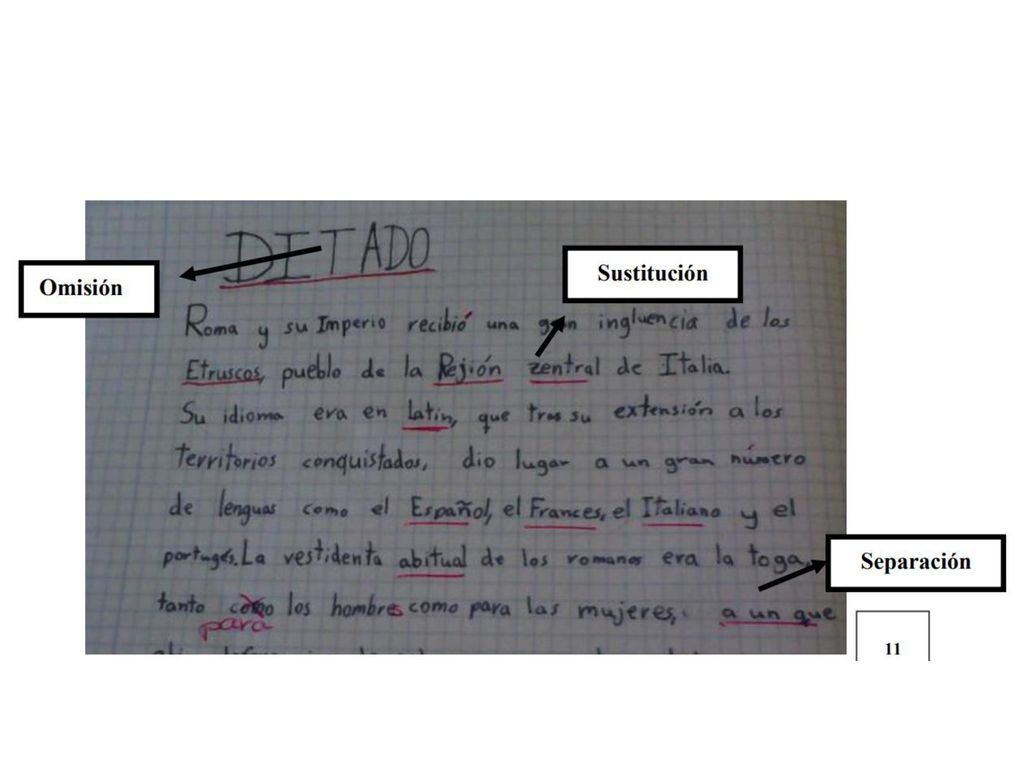 DITADO
Omisión
Sustitución
Roma y su Imperio recibió una gran ingluencia de los
Etruscos, pueblo de la Rejión zentral de Italia.
Su idioma era en latin, que tras su extensión a los
territorios conquistados, dio lugar a un gran número
de lenguas como el Español, el Frances, el Italiano y el
portugés. La vestidenta abitual de los romanos era la toga,
Separación
tanto como los hombres como para las mujeres, a un que
para
11